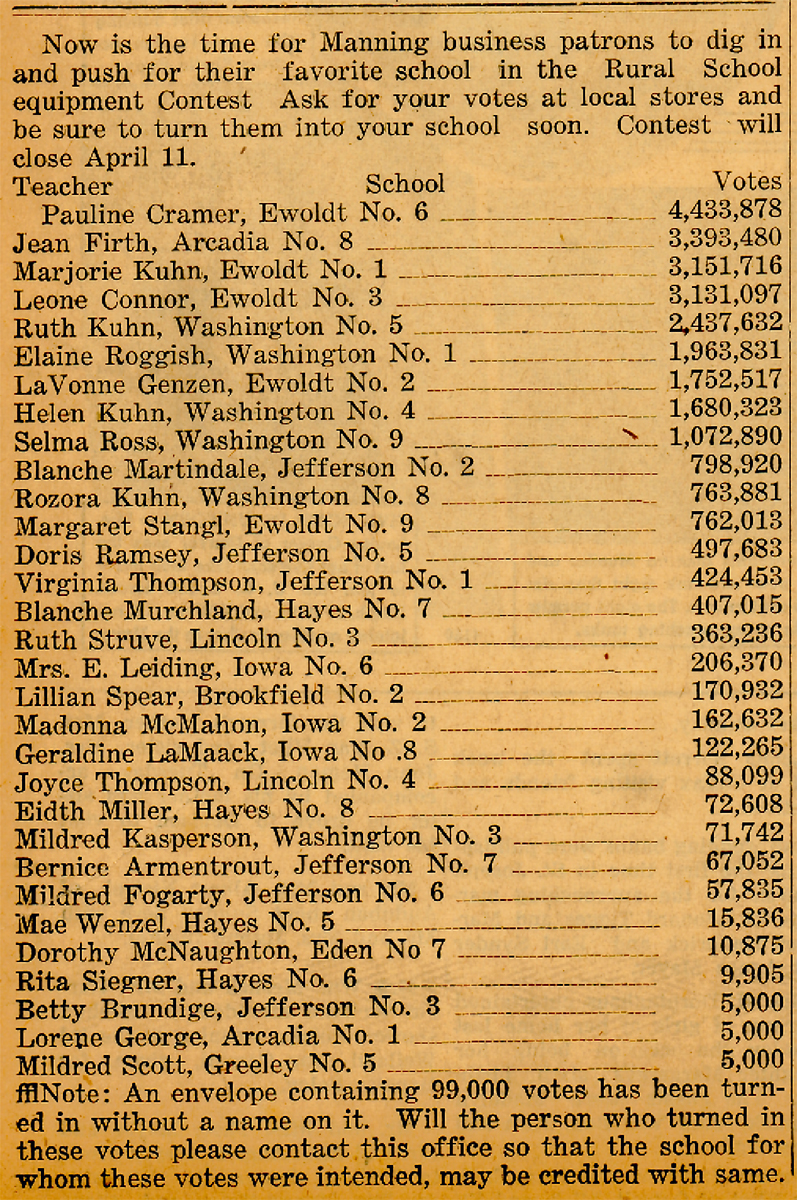 Now is the time for Manning business patrons to dig in
and push for their favorite school in the Rural School
equipment Contest Ask for your votes at local stores and
be sure to turn them into your school soon. Contest will
close April 11.
Teacher School Votes
Pauline Cramer, Ewoldt No. 6 4,433,878
Jean Firth, Arcadia No. 8 3,393,480
Marjorie Kuhn, Ewoldt No. 1 3,151,716
Leone Connor, Ewoldt No. 3 3,131,097
Ruth Kuhn, Washington No. 5 2,437,632
Elaine Roggish, Washington No. 1 1,963,831
LaVonne Genzen, Ewoldt No. 2 1,752,517
Helen Kuhn, Washington No. 4 1,680,323
Selma Ross, Washington No. 9 1,072,890
Blanche Martindale, Jefferson No. 2 798,920
Rozora Kuhn, Washington No. 8 763,881
Margaret Stangl, Ewoldt No. 9 762,013
Doris Ramsey, Jefferson No. 5 497,683
Virginia Thompson, Jefferson No. 1 424,453
Blanche Murchland, Hayes No. 7 407,015
Ruth Struve, Lincoln No. 3 363,236
Mrs. E. Leiding, Iowa No. 6 206,370
Lillian Spear, Brookfield No. 2 170,932
Madonna McMahon, Iowa No. 2 162,632
Geraldine LaMaack, Iowa No .8 122,265
Joyce Thompson, Lincoln No. 4 88,099
Eidth Miller, Hayes No. 8 72,608
Mildred Kasperson, Washington No. 3 71,742
Bernice Armentrout, Jefferson No. 7 67,052
Mildred Fogarty, Jefferson No. 6 57,835
Mae Wenzel, Hayes No. 5 15,836
Dorothy McNaughton, Eden No 7 10,875
Rita Siegner, Hayes No. 6 9,905
Betty Brundige, Jefferson No. 3 5,000
Lorene George, Arcadia No. 1 5,000
Mildred Scott, Greeley No. 5 5,000
fflNote: An envelope containing 99,000 votes has been turn-
ed in without a name on it. Will the person who turned in
these votes please contact this office so that the school for
whom these votes were intended, may be credited with same.